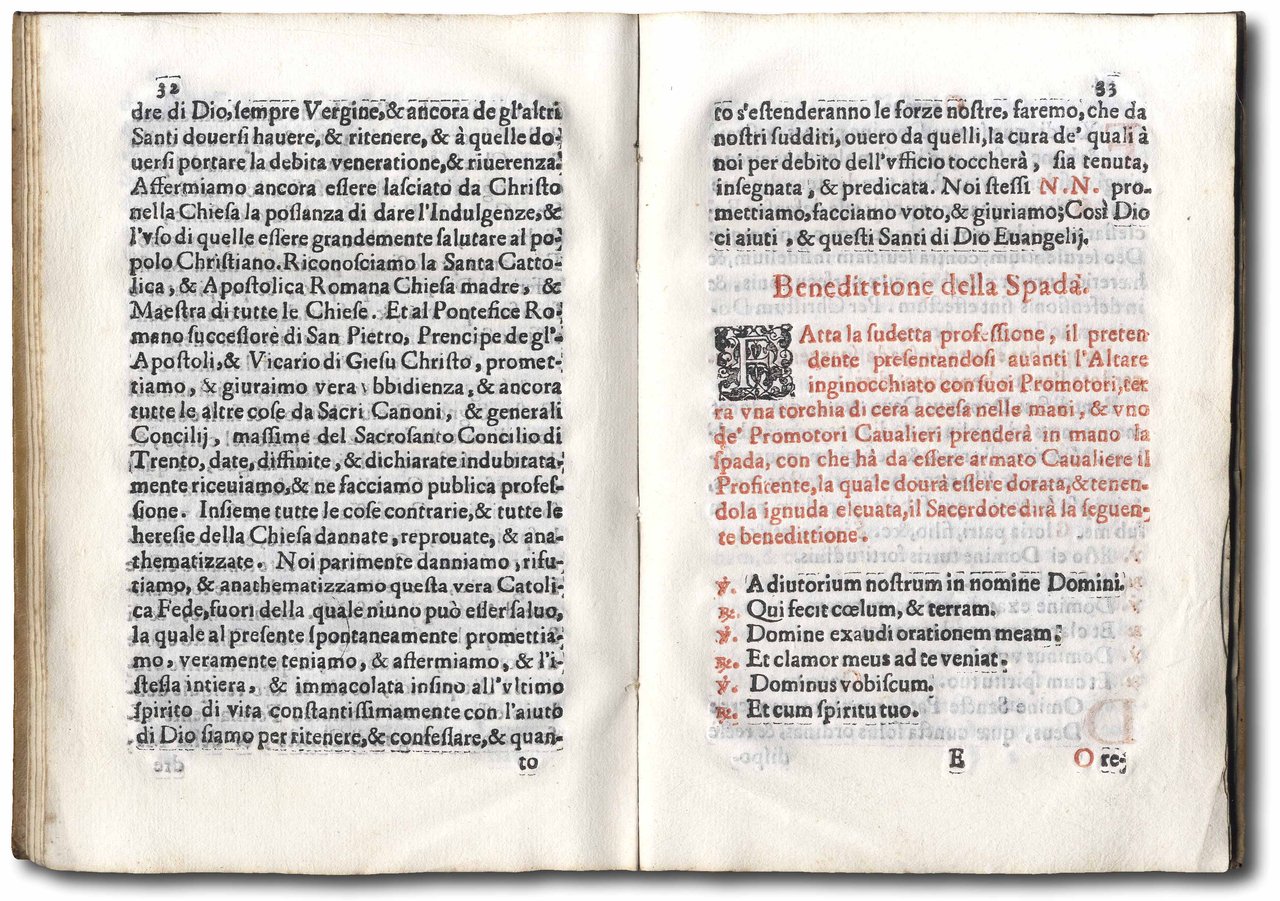 32
dre di Dio, ſempre Vergine, & ancora de gl'altri
Santi douerſi hauere, & ritenere, & à quelle do-
uerſi portare la debita veneratione, & riuerenza.
Affermiamo ancora eſſere laſciato da Chriſto
nella Chieſa la poſſanza di dare l'Indulgenze, &
l'vſo di quelle eſſere grandemente ſalutare al po-
polo Chriſtiano. Riconoſciamo la Santa Catto-
lica, & Apoſtolica Romana Chieſa madre, &
Maeſtra di tutte le Chieſe. Et al Pontefice Ro-
mano ſucceſſore di San Pietro, Prencipe de gl'
Apoſtoli, & Vicario di Gieſu Chriſto, promet-
tiamo, & giuraimo vera bbidienza, & ancora
tutte le altre coſe da Sacri Canoni, & generali
Concilij, maſſime del Sacroſanto Concilio di
Trento, date, diffinite, & dichiarate indubitata-
mente riceuiamo, & ne facciamo publica profeſ-
ſione. Inſieme tutte le coſe contrarie, & tutte le
hereſie della Chieſa dannate, reprouate, & ana-
thematizzate. Noi parimente danniamo, rifu-
tiamo, & anathematizzamo queſta vera Catoli-
ca Fede, fuori della quale niuno può eſſer ſaluo,
la quale al preſente ſpontaneamente promettia-
mo, veramente teniamo, & affermiamo, & l'i-
ſteſſa intiera, & immacolata inſino all'vltimo
ſpirito di vita conſtantiſſimamente con l'aiuto
di Dio ſiamo per ritenere, & confeſſare, & quan-
to
33
to s'eſtenderanno le forze noſtre, faremo, che da
noſtri ſudditi, ouero da quelli, la cura de' quali à
noi per debito dell'vfficio toccherà, ſia tenuta,
inſegnata, & predicata. Noi ſteſſi N.N. pro-
mettiamo, facciamo voto, & giuriamo; Così Dio
ci aiuti, & queſti Santi di Dio Euangelij.
Benedittione della Spada.
FAtta la ſudetta profeſſione, il preten
dente preſentandoſi auanti l'Altare
inginocchiato con ſuoi Promotori, ter
rà vna torchia di cera acceſa nelle mani, & vno
de' Promotori Caualieri prenderà in mano la
ſpada, con che hà da eſſere armato Caualiere il
Profitente, la quale dourà eſſere dorata, & tenen-
dola ignuda eleuata, il Sacerdote dirà la ſeguen-
te benedittione.
℣. Adiutorium noſtrum in nomine Domini.
℟. Qui fecit cœlum, & terram.
℣. Domine exaudi orationem meam.
℟. Et clamor meus ad te veniat.
℣. Dominus vobiſcum.
℟. Et cum ſpiritu tuo.
E
Ore-